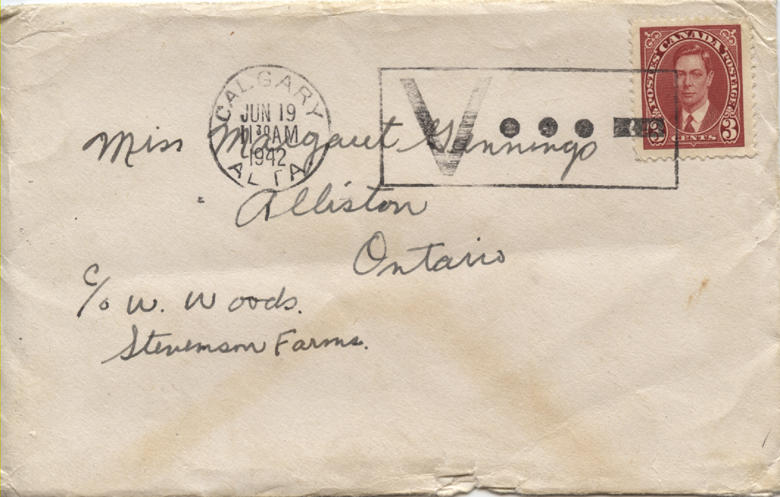 POSTES CANADA POSTAGE
3 CENTS 3
CALGARY
JUN 19
11 30 AM
1942
ALTA
V
Miss Margaret Jennings
Alliston
Ontario
c/o W. Woods.
Stevenson Farms.